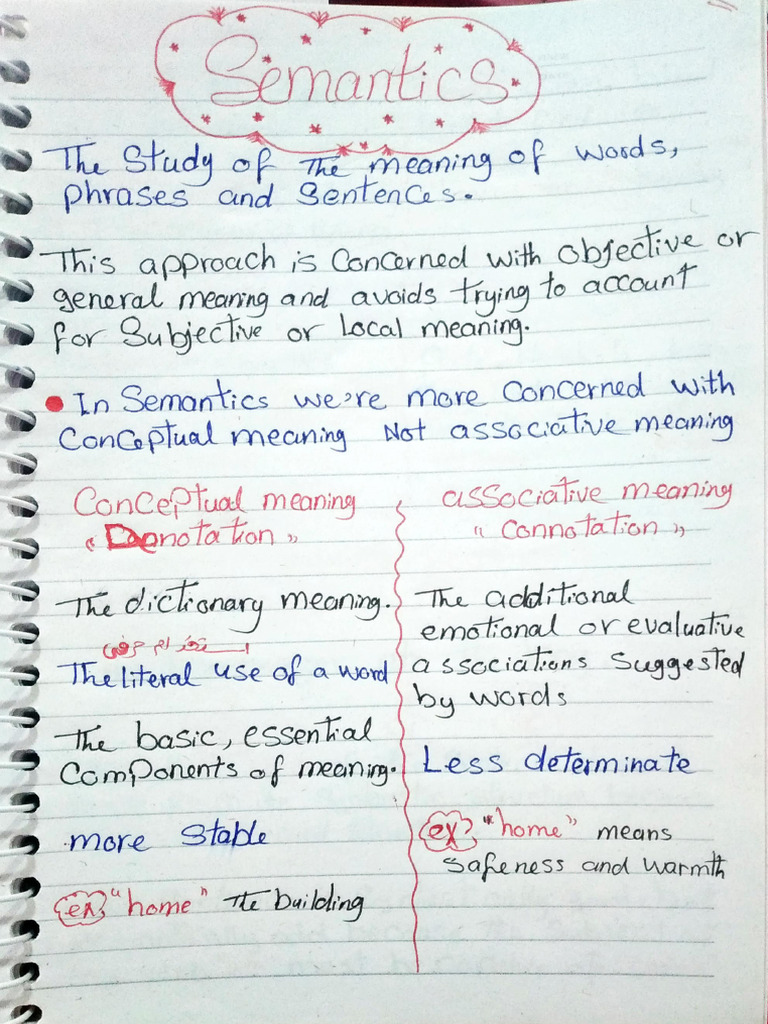 Semantics
The Study of The meaning of words,
phrases and Sentences.
This approach is Concerned with objective or
general meaning and avoids trying to account
for Subjective or Local meaning.
• In Semantics we're more Concerned with
Conceptual meaning Not associative meaning
Conceptual meaning
“Denotation”
The dictionary meaning.
استخدام حرفي
The literal use of a word
The basic, essential
Components of meaning.
more Stable
ex "home" The building
associative meaning
“Connotation”
The additional
emotional or evaluative
associations Suggested
by words
Less determinate
ex "home" means
Safeness and warmth